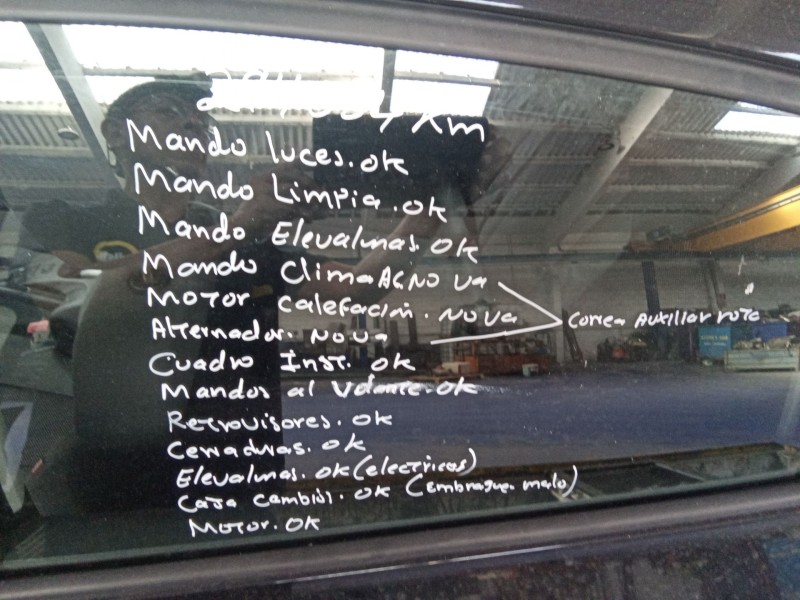 Km
Mando luces. ok
Mando Limpia. ok
Mando Elevalunas. ok
Mando Clima AC. NO va
Motor Calefacion. NO va
Correa Auxiliar rota
Alternador. NO va
Cuadro Inst. ok
Mandos al Volante. ok
Retrovisores. ok
Cerraduras. ok
Elevalunas. ok (electricos)
Caja Cambios. ok (Embrague malo)
Motor. ok